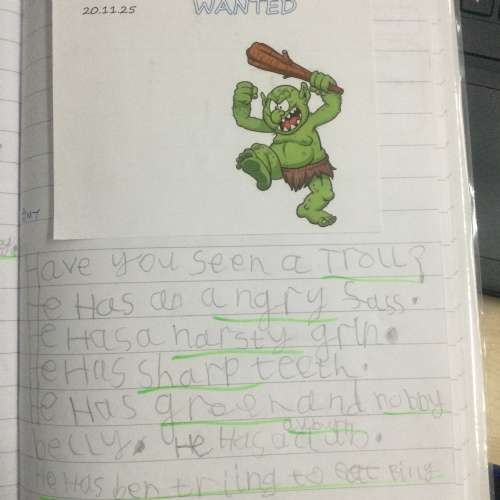 20.11.25
WANTED
Have you seen a Troll?
He Has an angry
He Has a narsty grin.
He Has sharp teeth.
He Has green and nobby
belly. He Has a
He Has ben triing to eat Billy